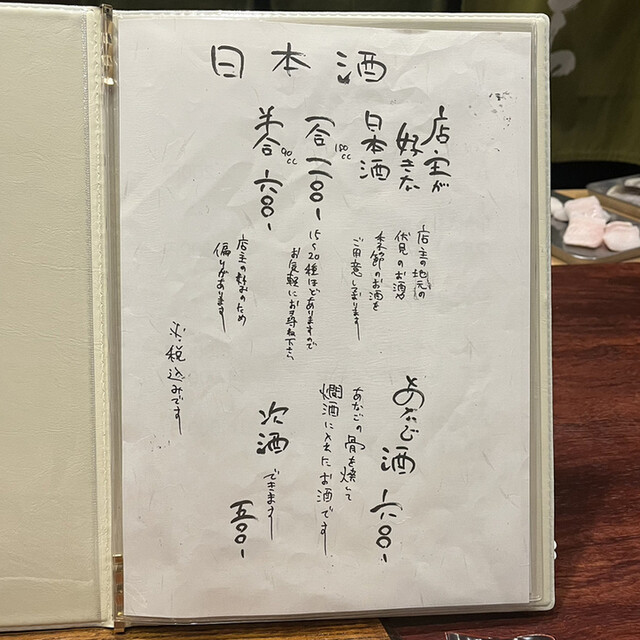 日本酒
店主が
好きな
日本酒
一合 180cc 一二〇〇ー
半合 90cc 六〇〇ー
店主の地元の
伏見のお酒や
季節のお酒を
ご用意しております
15〜20種ほどありますので
お気軽にお尋ね下さい
店主の好みのため
偏りがあります
あなご酒 六〇〇ー
あなごの骨を焼いて
燗酒に入れたお酒です
次酒 できます 五〇〇ー
※税込みです